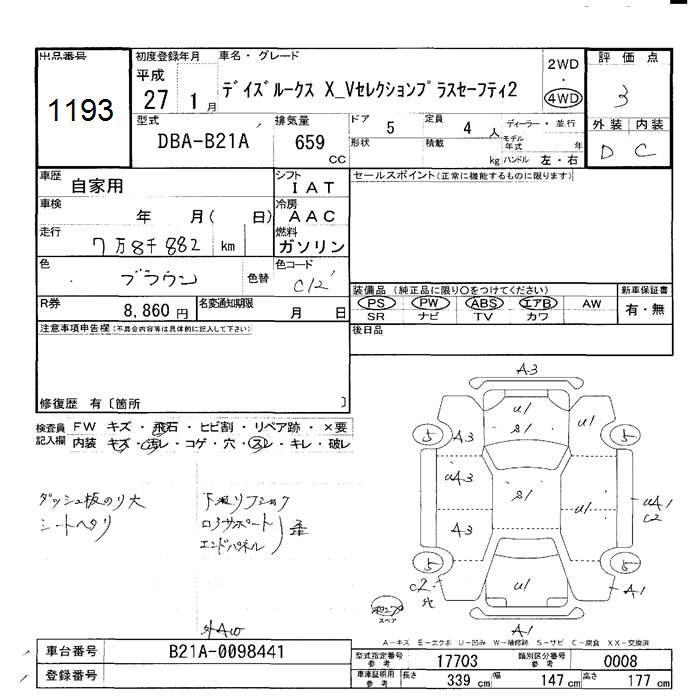 出品番号 1193
初度登録年月 平成 27 1月
車名・グレード デイズルークス X_Vセレクションプラスセーフティ2
2WD・4WD
評価点 3
外装 内装
D C
型式 DBA-B21A
排気量 659 CC
ドア 5
定員 4人
ディーラー・並行
形状
積載 kg
モデル年式 年
ハンドル 左・右
車歴 自家用
シフト IAT
セールスポイント(正常に機能するものに限ります)
車検 年 月( 日)
冷房 AAC
走行 7万8千882 km
燃料 ガソリン
色 ブラウン 色替
色コード C12
装備品(純正品に限り○をつけてください)
新車保証書
PS PW ABS エアB AW
有・無
SR ナビ TV カワ
R券 8,860円
名変通知期限 月 日
後日品
注意事項申告欄(不具合内容等は具体的に記入して下さい)
修復歴 有〔箇所 〕
検査員記入欄
FW キズ・飛石・ヒビ割・リペア跡・×要
内装 キズ・汚レ・コゲ・穴・スレ・キレ・破レ
ダッシュ板のり大
シートヘタリ
下廻りフショク
ロアサポート
エンドパネル
歪
外AW
A3
U1 U1
S1
5 A3 5
UA3 S1 UA1
C2
A3 U1
5 5
C2 穴 U1 A1
スペア
A1
A-キズ E-エクボ U-凹み W-補修跡 S-サビ C-腐食 XX-交換済
車台番号 B21A-0098441
型式指定番号 参考 17703
類別区分番号 参考 0008
登録番号
車庫証明用 参考
長さ 339 cm 幅 147 cm 高さ 177 cm